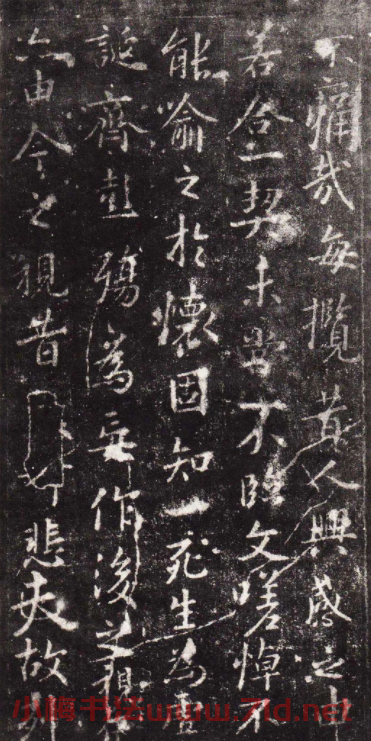 不痛哉每攬昔人興感之由
若合一契未嘗不臨文嗟悼不
能喻之於懷固知一死生為虛
誕齊彭殤為妄作後之視今
亦由今之視昔悲夫故列
书法www.7ld.net